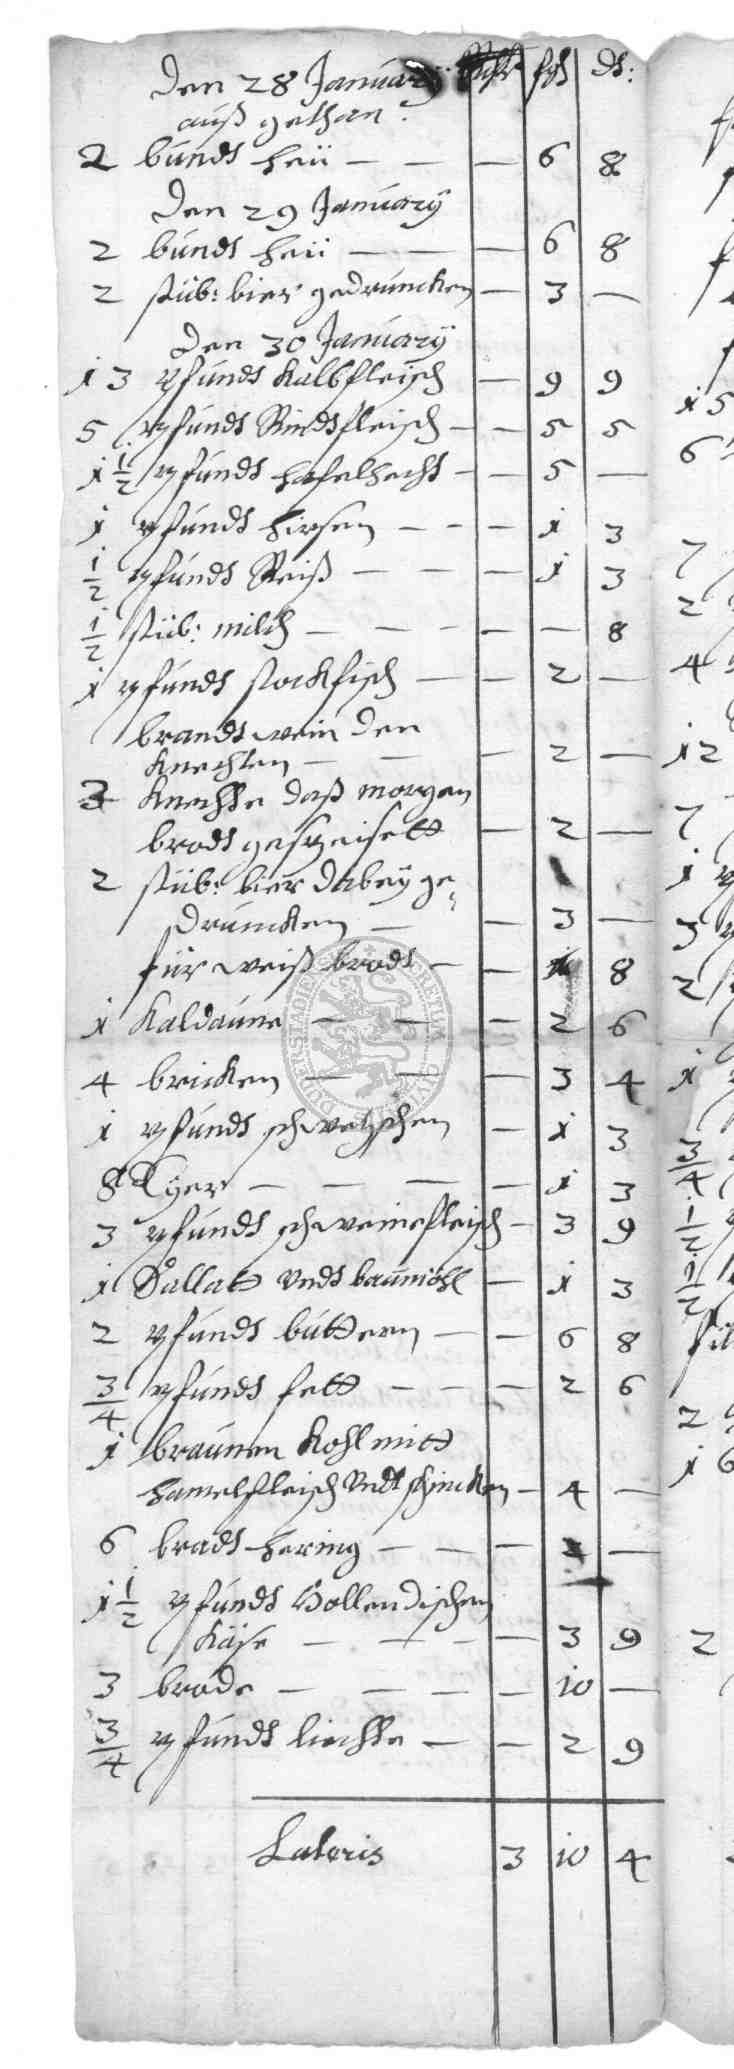 Den 28 January
auß gethan.
2 bundt heü — — — 6 8
Den 29 January
2 bundt heü — — — 6 8
2 stüb: bier gedruncken — 3 —
Den 30 January
i3 pfundt Kalbfleisch — 9 9
5 pfundt Rindtfleisch — — 5 5
i 1/2 pfundt hafelhecht — — 5 —
i pfundt hirsen — — — i 3
1/2 pfundt Reiß — — — i 3
1/2 stüb: milch — — — — — 8
i pfundt stockfisch — — 2 —
brandtwein den
Knechten — — — 2 —
3 Knechte daß morgen
brodt gespeisett — 2 —
2 stüb: bier dabey ge-
druncken — — 3 —
für weiß brodt — — i 8
i Kaldaune — — — 2 6
4 bricken — — — 3 4
i pfundt schwetzschen — i 3
8 Eyer — — — — i 3
3 pfundt schweinefleisch — 3 9
i Sallatt undt baumöhl — i 3
2 pfundt buttern — — 6 8
3/4 pfundt fett — — — 2 6
i braunen Kohl mitt
hamelfleisch undt schincken — 4 —
6 bradt hering — — — —
i 1/2 pfundt Hollendischen
Käse — — — 3 9
3 brode — — — — i0 —
3/4 pfundt liechte — — 2 9
Lateris 3 i0 4